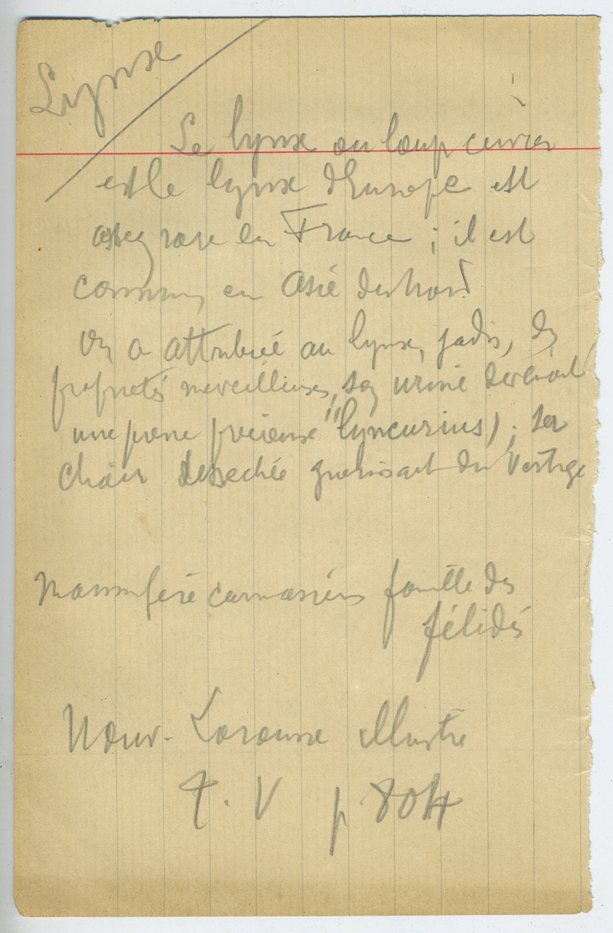 Lynx
Le lynx ou loup cervier
est le lynx d'Europe est
assez rare en France ; il est
commun en Asie du Nord
On a attribué au lynx, jadis, des
propriétés merveilleuses, son urine devenait
une pierre précieuse "lyncurius) ; sa
chair desechée guerissait du vertige
Mammifère carnassiers famille des
félidés
Nouv. Larousse illustré
T. V p. 804